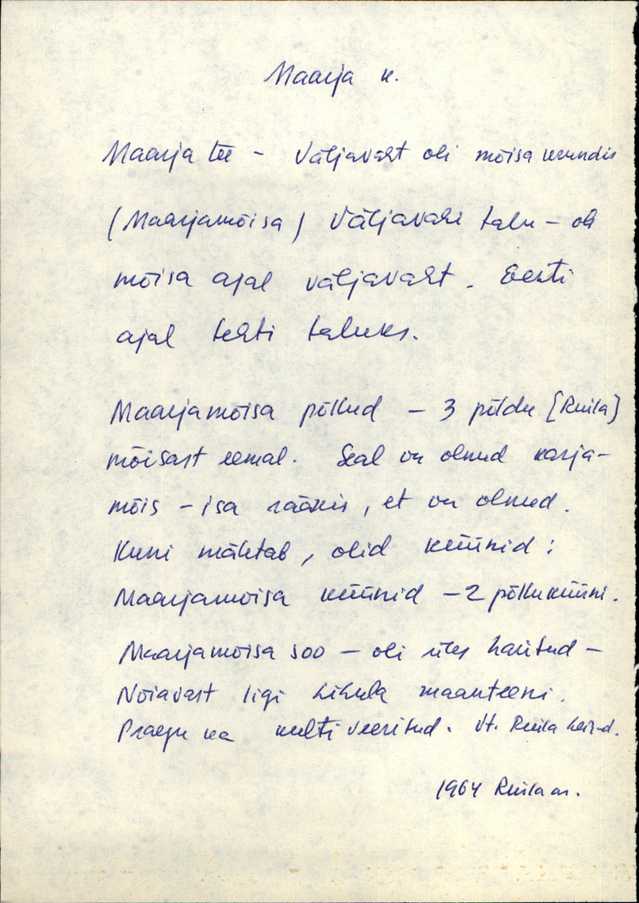 Maarja k.
Maarja tee – Väljavaht oli mõisa
(Maarjamõisa) Väljavahi talu – oli
mõisa ajal väljavaht. Eesti
ajal tehti taluks.
Maarjamõisa põllud – 3 põldu [Ruila]
mõisast eemal. Seal on olnud karja-
mõis – isa rääkis, et on olnud.
Kuni mäletab, olid küünid:
Maarjamõisa küünid – 2 põlluküüni.
Maarjamõisa soo – oli üles haritud –
ligi maanteeni.
Praegu ka kultiveeritud. Vt. Ruila
1964 Ruila m.